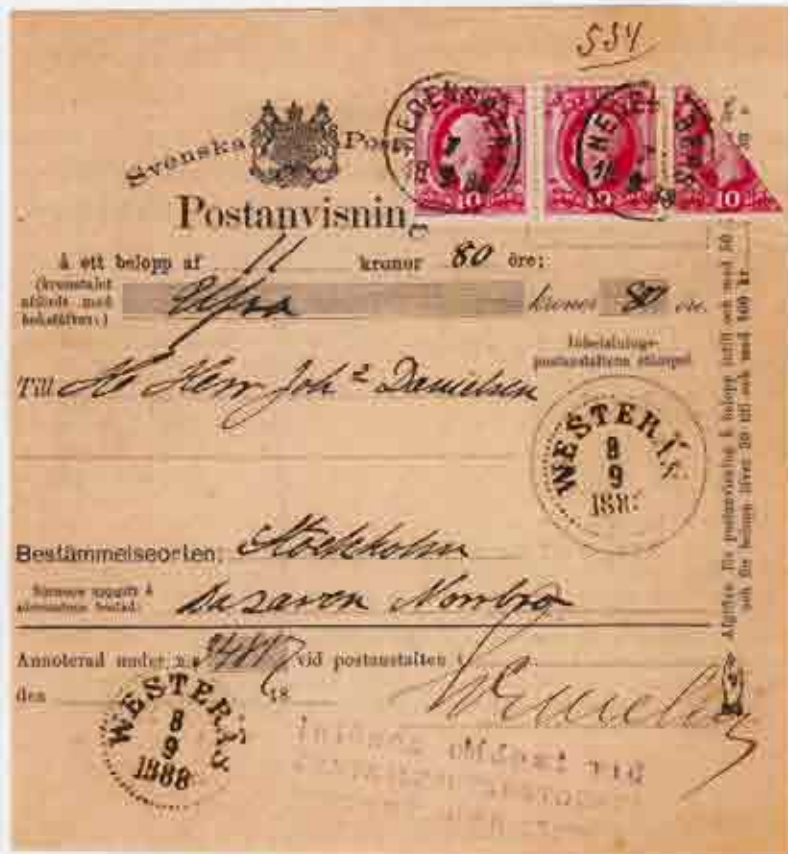 534
Svenska Post
Postanvisning
å ett belopp af 11 kronor 80 öre;
(kronotalet
utfördt med
bokstäfver:) Elfva kronor 80 öre.
Inbetalnings-
postanstaltens stämpel
Till Herr Joh Danielsen
WESTERÅS
8
9
188
Bestämmelseorten; Stockholm
Närmare uppgift å
adressatens bostad: Bazaren Norrbro
Annoterad under n:o vid postanstalten i
den 18
WESTERÅS
8
9
1888
10
10
10
Afgiften för postanvisning å belopp intill och med 50
och för belopp öfver 50 till och med 500 kr